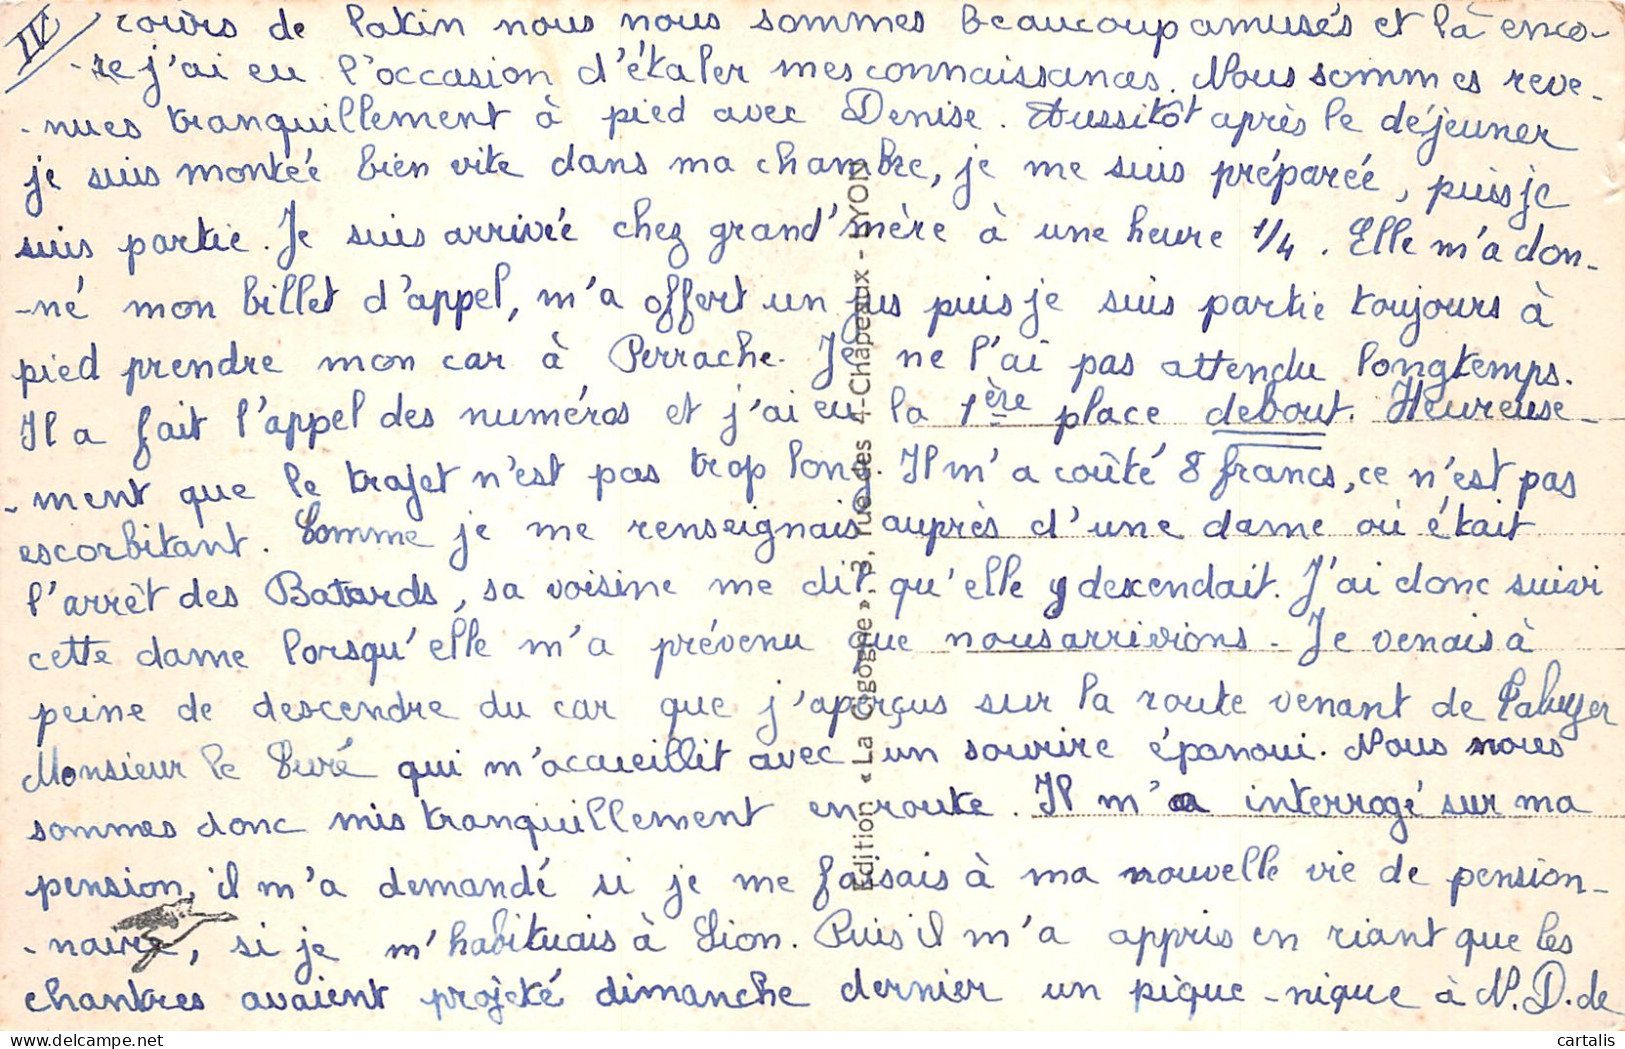 IV cours de latin nous nous sommes beaucoup amusés et là enco-
-re j'ai eu l'occasion d'étaler mes connaissances. Nous sommes reve-
-nues tranquillement à pied avec Denise. Aussitôt après le déjeuner
je suis montée bien vite dans ma chambre, je me suis préparée, puis je
suis partie. Je suis arrivée chez grand'mère à une heure 1/4. Elle m'a don-
-né mon billet d'appel, m'a offert un jus puis je suis partie toujours à
pied prendre mon car à Perrache. Je ne l'ai pas attendu longtemps.
Il a fait l'appel des numéros et j'ai eu la 1ère place debout. Heureuse-
-ment que le trajet n'est pas trop long. Il m'a coûté 8 francs, ce n'est pas
escorbitant. Comme je me renseignais auprès d'une dame où était
l'arrêt des Batards, sa voisine me dit qu'elle y descendait. J'ai donc suivi
cette dame lorsqu'elle m'a prévenu que nous arrivions. Je venais à
peine de descendre du car que j'aperçus sur la route venant de
Monsieur le Curé qui m'accueillit avec un sourire épanoui. Nous nous
sommes donc mis tranquillement en route. Il m'a interrogé sur ma
pension, il m'a demandé si je me faisais à ma nouvelle vie de pension-
-naire, si je m'habituais à Lion. Puis il m'a appris en riant que les
chantres avaient projeté dimanche dernier un pique-nique à N.D. de
Edition « La Cigogne » - 3, rue des 4-Chapeaux - LYON
cartalis